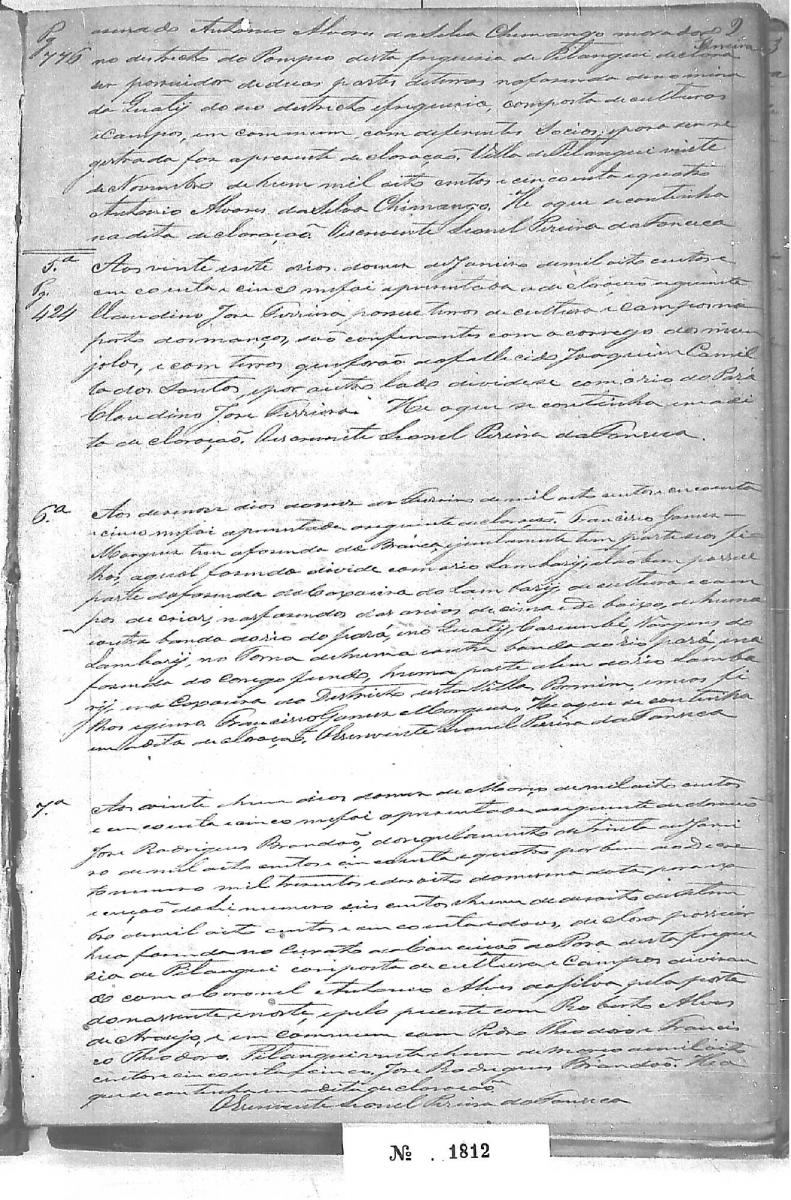 2
Pg
776
Antonio Alvares da Silva Chimango morador
no destricto do Pompeo desta freguesia de Pitangui declara
ser possuidor de duas partes de terras na fazenda denomina
da Quaty do seo destricto e freguesia, composta de culturas
e Campos, em commum com deferentes Socios; e para ser re
gistrada fez a presente declaração. Villa de Pitangui vinte
de Novembro de hum mil oito centos e cincoenta e quatro
Antonio Alvares da Silva Chimango. He o que se continha
na dita declaração. O escrevente Leonel Pereira da Fonseca
5.ª
Pg.
424
Aos vinte e sete dias do mez de Janeiro de mil oito centos e
cincoenta e cinco me foi apresentada a declaração seguinte
Claudino Jose Ferreira, possue terras de cultura e campos na
porto dos mansos, são confinantes com o corrego do monjo
jolos, e com terras que forão do fallecido Joaquim Camil
lo dos Santos, e por outro lado divide se com o rio do Pará
Claudino Jose Ferreira. He o que se continha em a di
ta declaração. O escrevente Leonel Pereira da Fonseca.
6.ª
Aos dezenove dias do mez de Fevereiro de mil oito centos e cincoenta
e cinco me foi apresentada a seguinte declaração. Francisco Gomes
Marques tem a fazenda do e juntamente tem parte seos fi
lhos, a qual fazenda divide com o rio Lambary, e tão bem possue
parte da fazenda da Capoeira do Lambary, de cultura e cam
pos de criar, nas fazendas das areias de cima e de baixo, de huma
e outra banda do rio do pará, e no Quaty, Vargem do
Lambary, no Toma de huma e outra banda do rio pará, e na
fazenda do corrego fundo, huma parte alem do rio Lamba
ry, e na Capoeira do Districto desta Villa, Por mim, e meos fi
lhos e genro. Francisco Gomes Marques. He o que se continha
em a dita declaração. O Escrevente Leonel Pereira da Fonseca
7.ª
Aos vinte e hum dias do mez de Março de mil oito centos
e cincoenta e cinco me foi apresentada a seguinte declaração
Jose Rodrigues Brandaõ, do regulamento de trinta de Janei
ro de mil oito centos e cincoenta e quatro por bem do Decre
to numero mil trezentos e dezoito da mesma data para a
execução da Lei numero seis centos e hum de dezoito de Setem
bro de mil oito centos e cincoenta e dous, declara possuir
hua fazenda no Curato da Conceição do Pará desta fregue
sia de Pitangui composta de cultura e Campos dividin
do com o Coronel Antonio Alves da Silva pela parte
do nascente e norte, e pelo poente com Roberto Alves
de Araujo, e em commum com Pedro Theodoro e Francis
co Theodoro. Pitangui vinte e hum de março de mil oito
centos e cincoenta e cinco, Jose Rodrigues Brandaõ. He o
que se continha em a dita declaração
O Escrevente Leonel Pereira da Fonseca
Nº . 1812